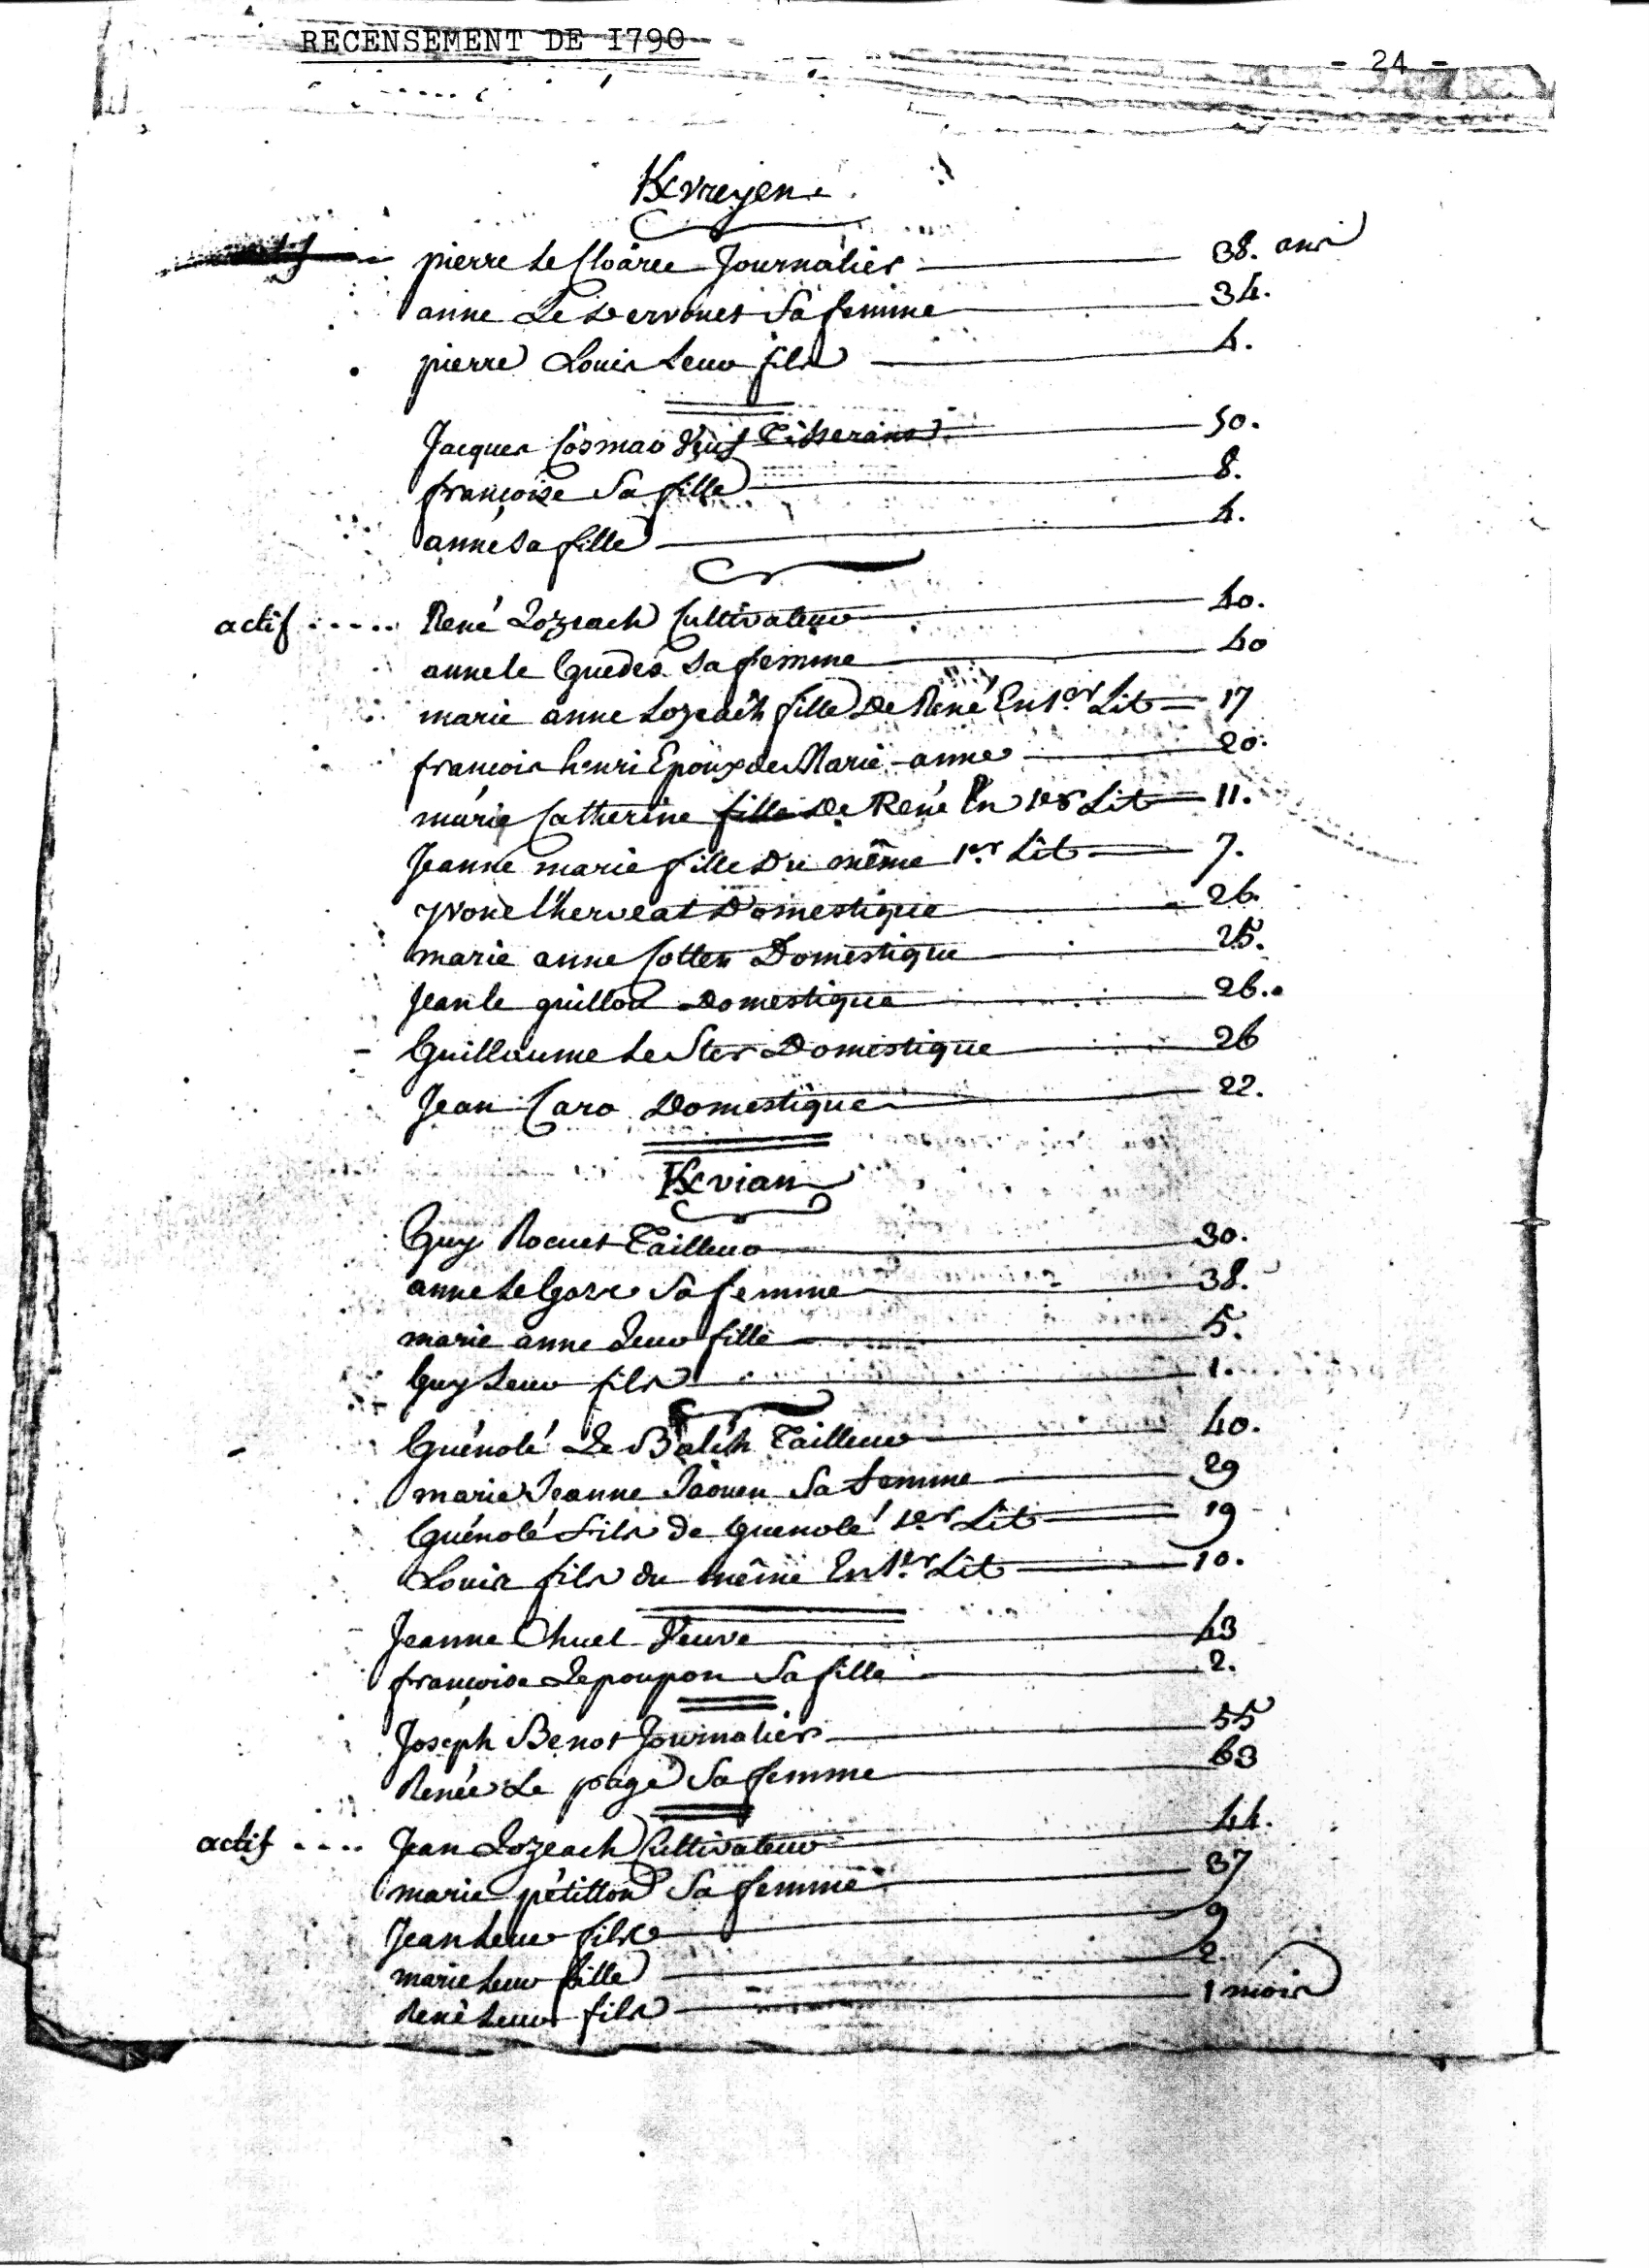 RECENSEMENT DE I790
- 24 -
K/vreyen
pierre Le Cloarec Journalier 38. ans
anne Le servouet sa femme 34.
pierre Louis Leur fils 4.
Jacques Cosmao Veuf Tisserand 50.
françoise sa fille 8.
anne sa fille 4.
actif ..... René Lozeach Cultivateur 40.
anne le Guedes sa femme 40
marie anne Lozeach fille de René En 1er Lit 17
francois henri Epoux de Marie anne 20.
marie Catherine fille de René En 1er Lit 11.
Jeanne marie fille du même 1er Lit 7.
yvone l'herveat Domestique 26.
marie anne Cotten Domestique 25.
Jean le guillou Domestique 26.
Guillaume Le Ster Domestique 26
Jean Caro Domestique 22.
K/vian
Guy Rocuet Tailleur 30.
anne Le Gore sa femme 38.
marie anne Leur fille 5.
Guy Leur fils 1.
Guénolé Le Balch Tailleur 40.
marie Jeanne Jaouen sa femme 29
Guénolé fils de Guenolé 1er Lit 19
Louis fils du même En 1er Lit 10.
Jeanne Chuel Veuve 43
françoise Le poupon sa fille 2.
Joseph Benot Journalier 55
Renée Le page sa femme 63
actif .... Jean Lozeach Cultivateur 44.
marie pétitton sa femme 37
Jean Leur fils 9
marie Leur fille 2.
René Leur fils 1 mois